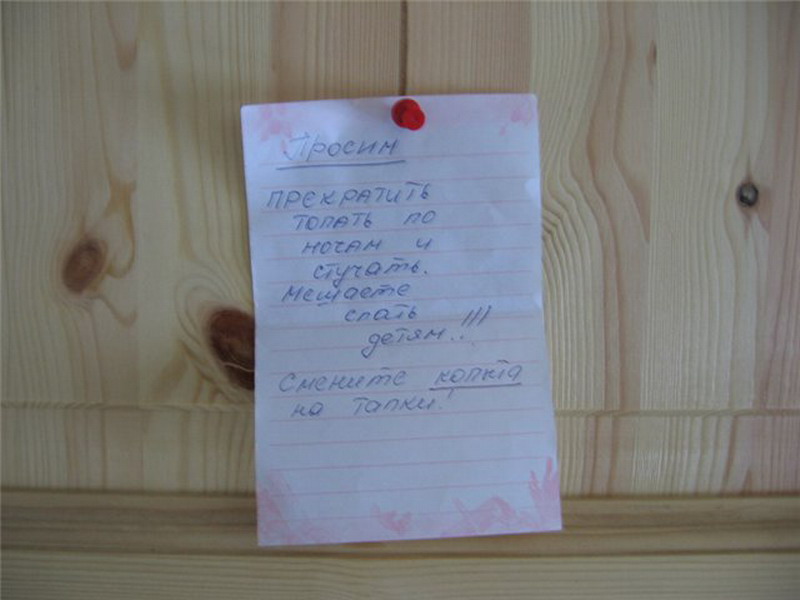 Просим
прекратить
топать по
ночам и
стучать.
Мешаете
спать
детям..!!!
Смените копыта
на тапки!